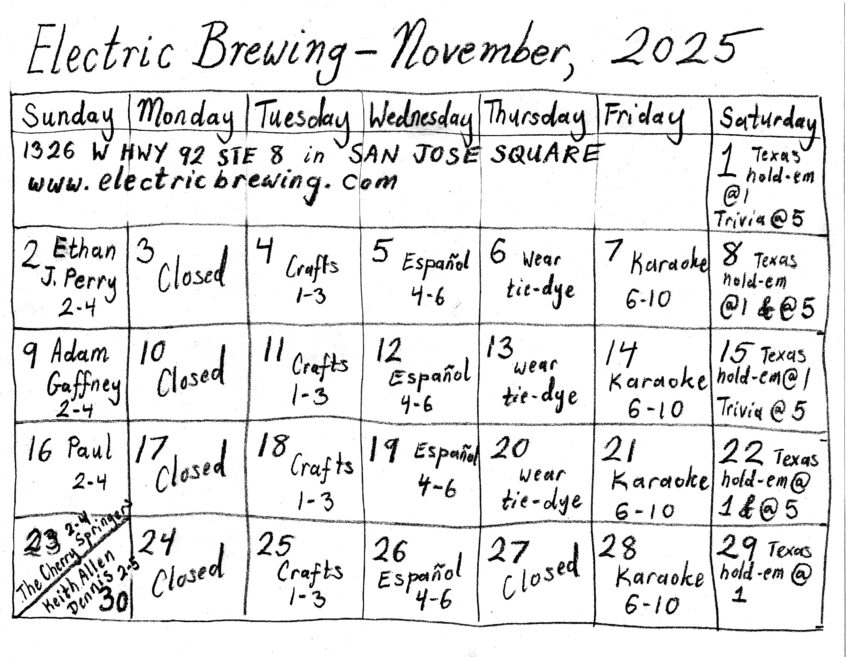 Electric Brewing - November, 2025
Sunday Monday Tuesday Wednesday Thursday Friday Saturday
1326 W HWY 92 STE 8 in SAN JOSE SQUARE
www.electricbrewing.com
1 Texas
hold-em
@1
Trivia @ 5
2 Ethan
J. Perry
2-4
3
Closed
4
Crafts
1-3
5 Español
4-6
6 Wear
tie-dye
7 Karaoke
6-10
8 Texas
hold-em
@1 & @5
9 Adam
Gaffney
2-4
10
Closed
11
Crafts
1-3
12
Español
4-6
13
wear
tie-dye
14
Karaoke
6-10
15 Texas
hold-em@1
Trivia @ 5
16 Paul
2-4
17
Closed
18
Crafts
1-3
19 Español
4-6
20
wear
tie-dye
21
Karaoke
6-10
22 Texas
hold-em@
1 & @ 5
23 2-4
The Cherry Springers
Keith Allen
Dennis 2-5
30
24
Closed
25
Crafts
1-3
26
Español
4-6
27
Closed
28
Karaoke
6-10
29 Texas
hold-em @
1